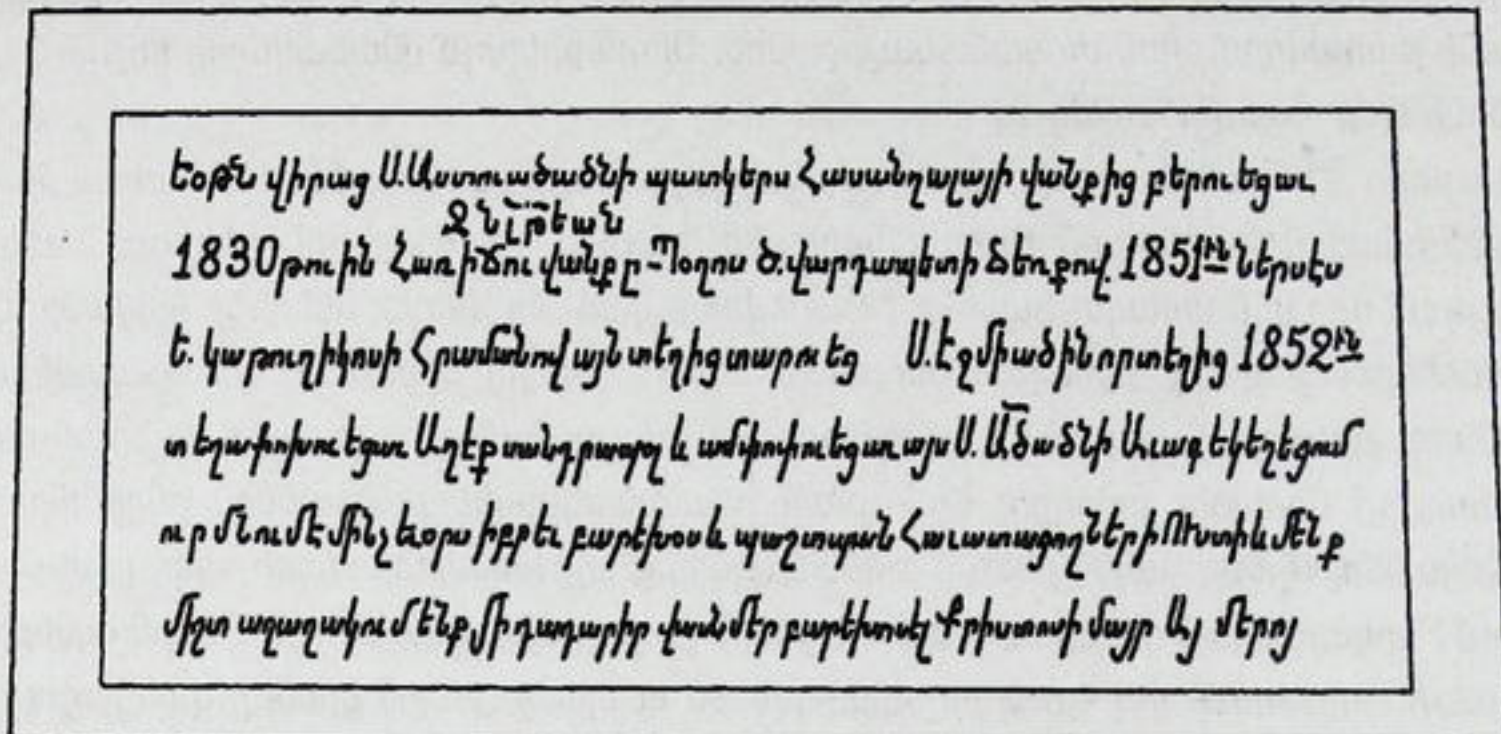 Եօթն վիրաց Ս.Աստուածածնի պատկերս Հասանղալայի վանքից բերուեցաւ
Ջնլթեան
1830թուին Հառիճու վանքը-Պօղոս ծ.վարդապետի ձեռքով. 1851ին Ներսէս
Ե. կաթուղիկոսի Հրամանով այնտեղից տարուեց Ս.Էջմիածին որտեղից 1852ին
տեղափոխուեցաւ Աղէքսանդրապօլ և ամփոփուեցաւ այս Ս. Ած̅ածնի Աւագ եկեղեցում
ուր մնում է մինչեւ օրս իբրեւ բարեխօս և պաշտպան Հաւատացողների Ուստի և մենք
միշտ աղաղակում ենք մի դադարիր վասն մեր բարեխոսել Քրիստոսի մայր Այ մերոյ